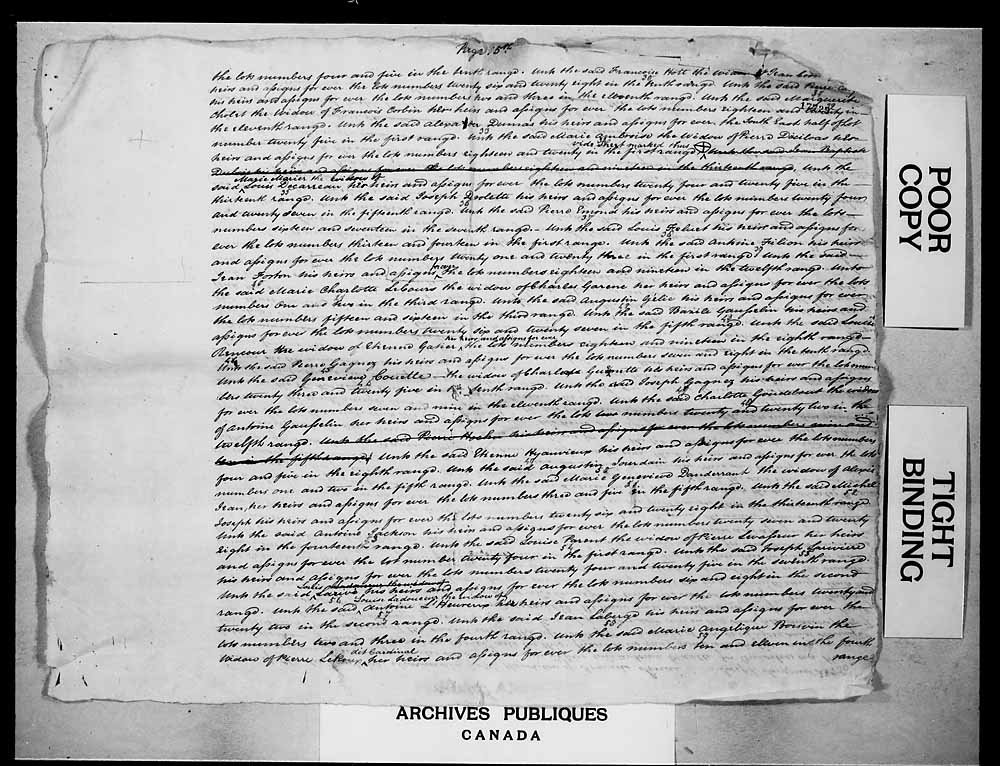 Page 15th
the lots numbers four and five in the tenth range. Unto the said Françoise Hott the widow of Jean
heirs and assigns for ever the lots numbers twenty six and twenty eight in the tenth range. Unto the said Pierre
his heirs and assigns for ever the lots numbers two and three in the eleventh range. Unto the said Marguerite
Cholet the widow of Francois Robin her heirs and assigns for ever the lots numbers eighteen and twenty in
the eleventh range. Unto the said Alexander Dumas his heirs and assigns for ever, the South East half of lot
number twenty five in the first range. Unto the said Marie Ambroise the widow of Pierre Dasilvas her
vide Sheet marked thus
heirs and assigns for ever the lots numbers eighteen and twenty in the first range. Unto the said Jean Baptiste
his heirs and assigns for ever the lots numbers eighteen and nineteen in the thirteenth range. Unto the
Marie Mercier the widow of
said Louis Decarreau her heirs and assigns for ever the lots numbers twenty four and twenty five in the
thirteenth range. Unto the said Joseph Drolette his heirs and assigns for ever the lots numbers twenty four
and twenty seven in the fifteenth range. Unto the said Pierre Emond his heirs and assigns for ever the lots
numbers sixteen and seventeen in the seventh range. Unto the said Louis Febert his heirs and assigns for
ever the lots numbers thirteen and fourteen in the first range. Unto the said Antoine Filion his heirs
and assigns for ever the lots numbers twenty one and twenty three in the first range. Unto the said
Jean Forton his heirs and assigns the lots numbers eighteen and nineteen in the twelfth range. Unto
the said Marie Charlotte Lebours the widow of Charles Garene her heirs and assigns for ever the lots
numbers One and two in the third range. Unto the said Augustin Gelie his heirs and assigns for ever
the lots numbers fifteen and sixteen in the third range. Unto the said Basile Gausselin his heirs and
assigns for ever the lots numbers twenty six and twenty seven in the fifth range. Unto the said Louise
her heirs and assigns for ever
the widow of Etienne Gatier the lots numbers eighteen and nineteen in the eighth range
Unto the said Pierre Gagnez his heirs and assigns for ever the lots numbers seven and eight in the tenth range
Unto the said Genevieve Couelle the widow of Charles her heirs and assigns for ever the lots num
bers twenty three and twenty five in the tenth range. Unto the said Joseph Gagnez his heirs and assigns
for ever the lots numbers seven and nine in the eleventh range. Unto the said Charlotte Guindabout the widow
of Antoine Gausselin her heirs and assigns for ever the lots numbers twenty and twenty two in the
twelfth range. Unto the said Pierre his heirs and assigns for ever the lots numbers and
in the fifth range. Unto the said Etienne his heirs and assigns for ever the lots numbers
four and five in the eighth range. Unto the said Augustin Jourdain his heirs and assigns for ever the lots
numbers one and two in the fifth range. Unto the said Marie Genevieve the widow of Alexis
Jean her heirs and assigns for ever the lots numbers three and five in the fifth range. Unto the said Michel
Joseph his heirs and assigns for ever the lots numbers twenty six and twenty eight in the thirteenth range
Unto the said Antoine Jackson his heirs and assigns for ever the lots numbers twenty seven and twenty
eight in the fourteenth range. Unto the said Louise Parent the widow of Pierre Levasseur her heirs
and assigns for ever the lot number twenty four in the first range. Unto the said Joseph
his heirs and assigns for ever the lots numbers twenty four and twenty five in the seventh range
Unto the said Larive his heirs and assigns for ever the lots numbers six and eight in the second
Louise Ladouceur the widow of
range. Unto the said Antoine L'Heureux her heirs and assigns for ever the lots numbers twenty and
twenty two in the second range. Unto the said Jean Laberge his heirs and assigns for ever the
lots numbers two and three in the fourth range. Unto the said Marie Angelique Boisvin the
dit Cardinal
widow of Pierre her heirs and assigns for ever the lots numbers ten and eleven in the fourth
range
POOR
COPY
TIGHT
BINDING
ARCHIVES PUBLIQUES
CANADA